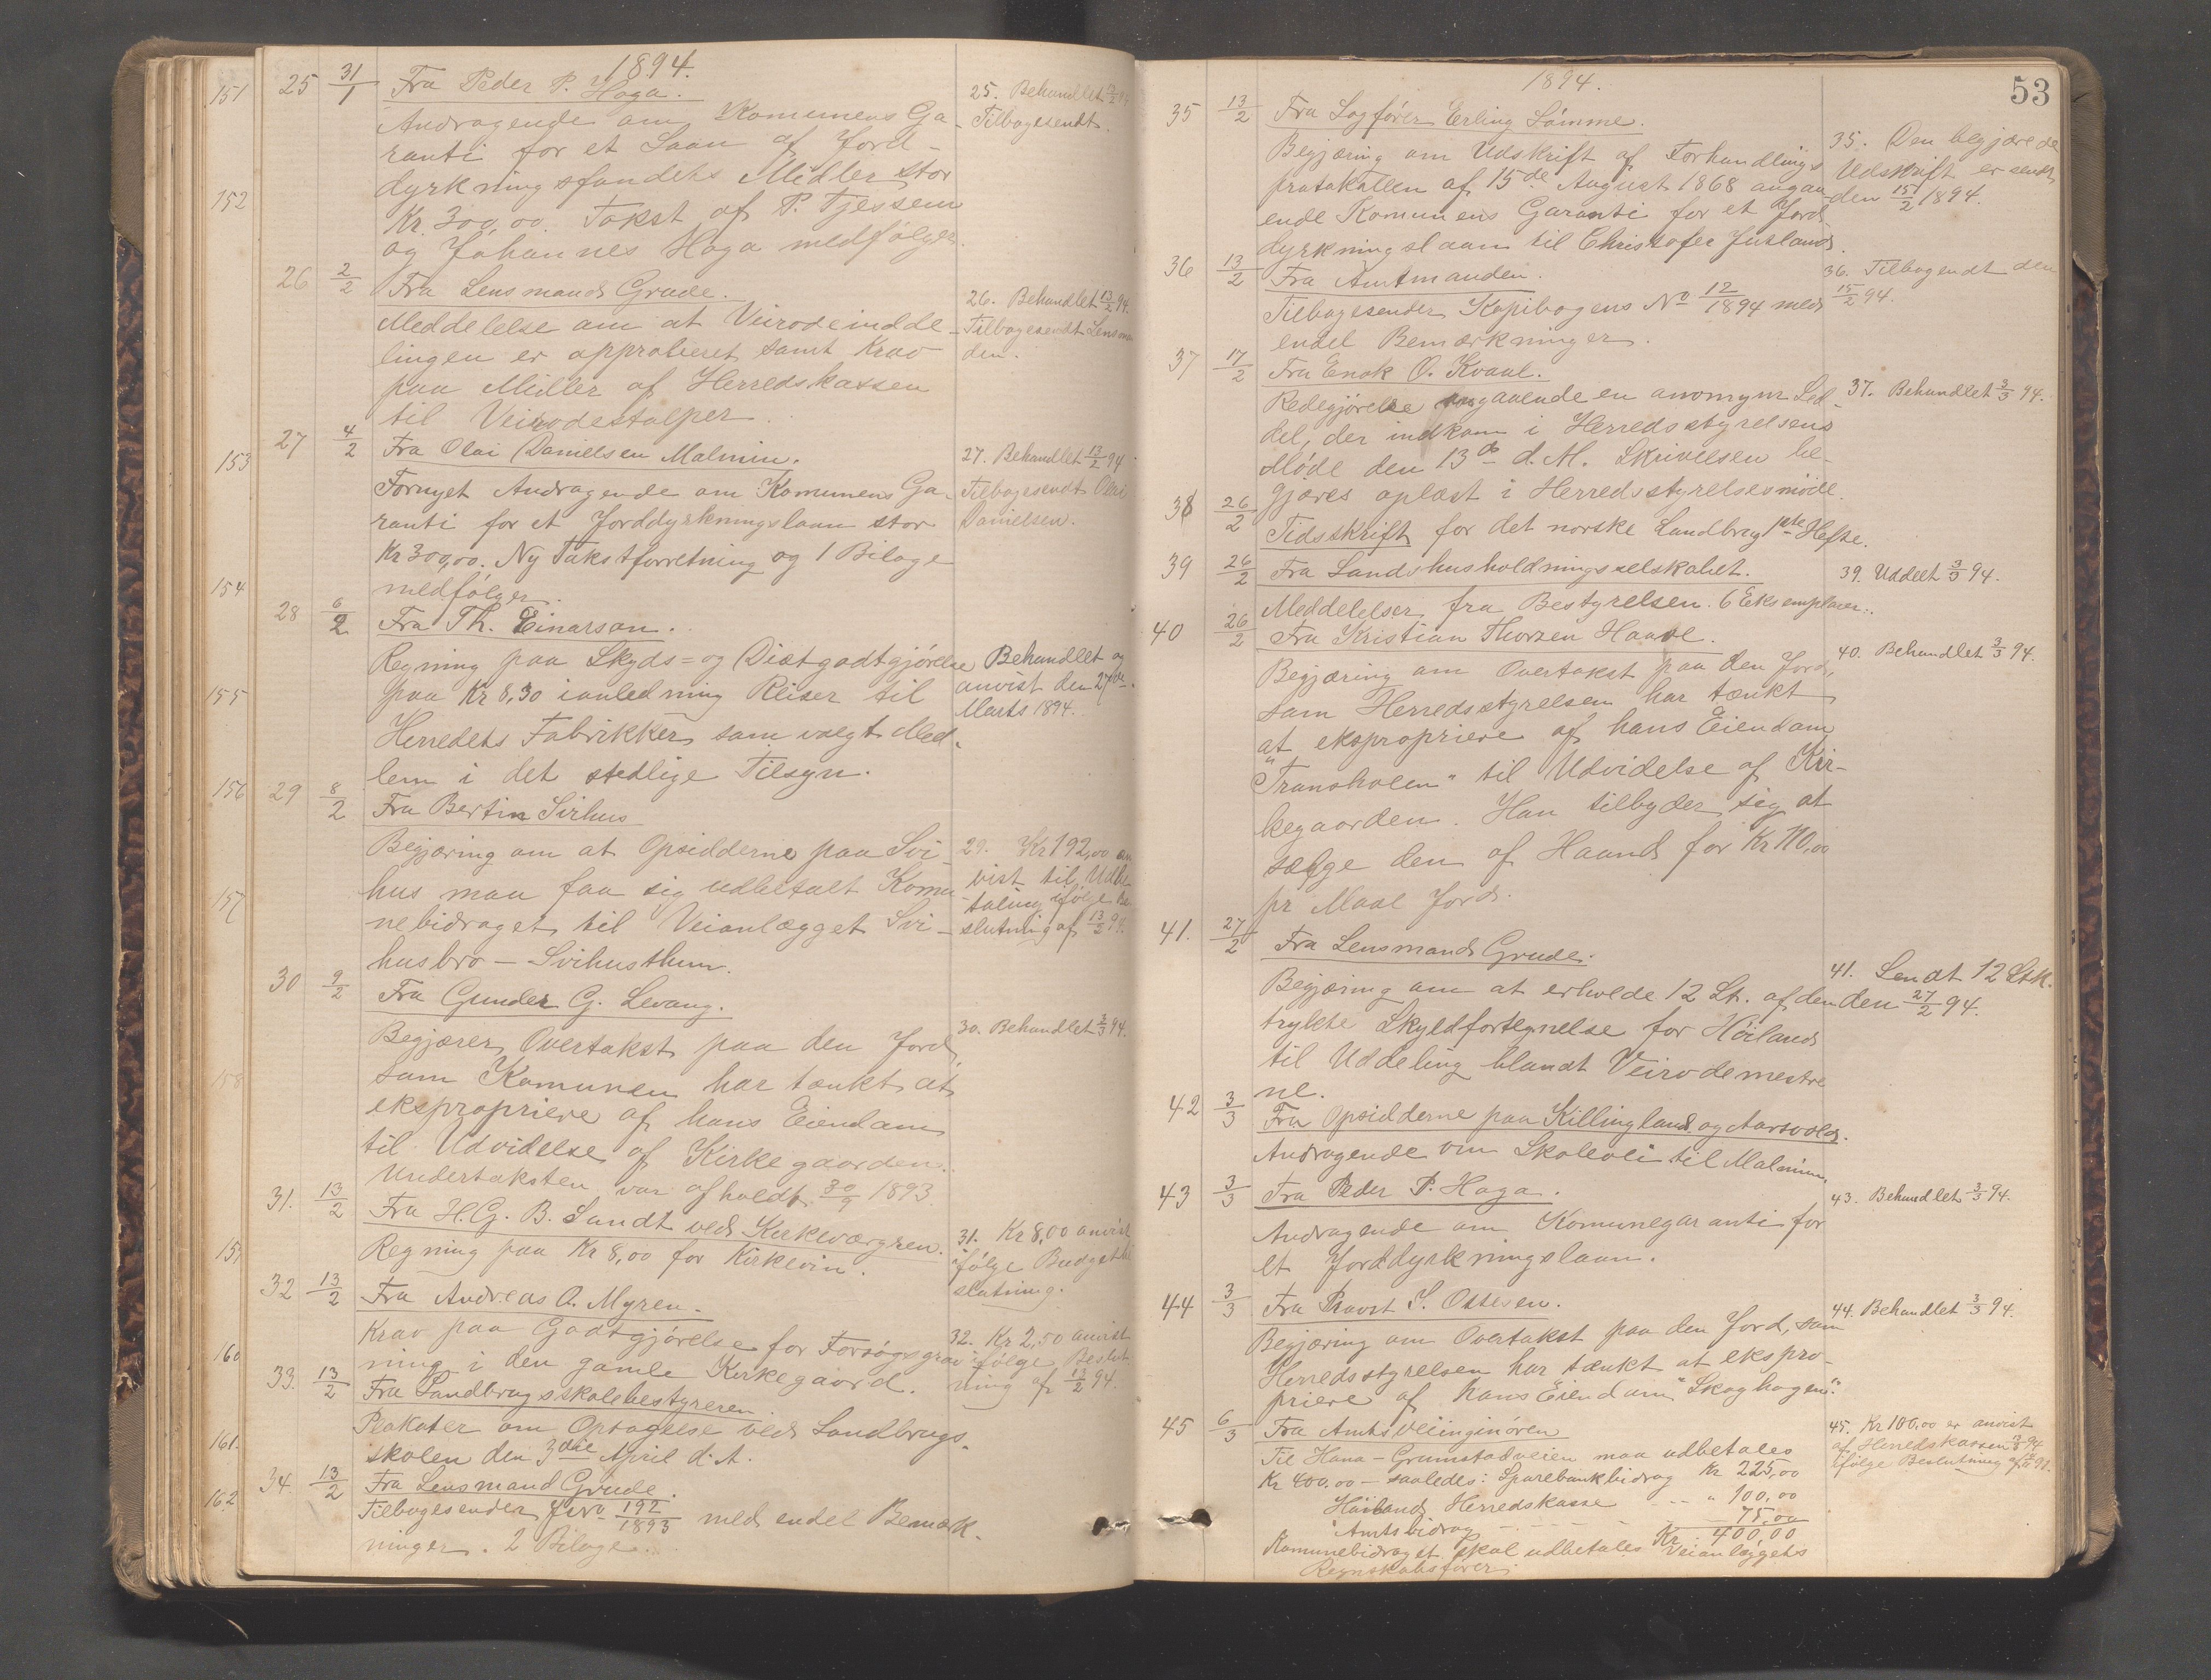 1894.
151
25 31/1 Fra Peder P. Haga.
Andragende om Komunens Ga-
ranti for et Laan af Jord-
dyrkningsfondets Midler stor
Kr. 300,00. Takst af P. Tjessem
og Johannes Haga medfølger.
25. Behandlet 13/2 94
Tilbagesendt.
152
26 2/2 Fra Lensmand Grude.
Meddelelse om at Veirodeindde-
lingen er approberet samt Krav
paa Midler af Herredskassen
til Veirodestolper.
26. Behandlet 13/2 94.
Tilbagesendt Lensman
den.
153
27 4/2 Fra Olai Danielsen Malmin.
Fornyet Andragende om Komunens Ga-
ranti for et Jorddyrkningslaan stor
Kr 300,00. Ny Takstforretning og 1 Bilage
medfølger.
27. Behandlet 13/2 94
Tilbagesendt Olai
Danielsen.
154
28 6/2 Fra Th. Einarson.
Regning paa Skyds= og Diætgodtgjørelse
paa Kr 8,30 ianledning Reiser til
Herredets Fabrikker som valgt Med-
lem i det stedlige Tilsyn.
Behandlet og
anvist den 27de
Marts 1894.
155
156
29 8/2 Fra Bertin Svihus
Begjæring om at Opsidderne paa Svi-
hus maa faa sig udbetalt Komu-
nebidraget til Veianlægget Svi-
husbro - Svihusthun.
29. Kr 192,00 an
vist til Udbe
taling ifølge Be
slutning af 13/2 94.
157
30 9/2 Fra Gunder G. Levang.
Begjærer Overtakst paa den Jord,
som Komunen har tænkt at
ekspropriere af hans Eiendom
til Udvidelse af Kirkegaarden.
Undertaksten var afholdt 30/9 1893.
30. Behandlet 3/3 94.
158
31. 13/2 Fra H. G. B. Sandt ved Kirkeværgen.
Regning paa Kr 8,00 for Kirkevin.
31. Kr 8,00 anvist
ifølge Budgetbe
slutning.
159
32 13/2 Fra Andreas A. Myren.
Krav paa Godtgjørelse for Forsøgsgrav
ning i den gamle Kirkegaard.
32. Kr 2,50 anvist
ifølge Beslut
ning af 13/2 94.
160
33. 13/2 Fra Landbrugsskolebestyreren.
Plakater om Optagelse ved Landbrugs-
skolen den 3die April d. A.
161.
34. 13/2 Fra Lensmand Grude.
Tilbagesender Jvno 192/1893 med endel Bemærk-
ninger. 2 Bilage.
162
53
1894.
35 13/2 Fra Sagfører Erling Sømme.
Begjæring om Udskrift af Forhandlings
protokollen af 15de August 1868 angaa
ende Komunens Garanti for et Jord
dyrkningslaan til Christofer Julland.
35. Den begjærede
Udskrift er sendt
den 15/2 1894.
36 13/2 Fra Amtmanden.
Tilbagesender Kopibogens No 12/1894 med
endel Bemærkninger.
36. Tilbagendt den
15/2 94.
37 17/2 Fra Enok O. Kvaal.
Redegjørelse angaaende en anonym Sed-
del, der indkom i Herredsstyrelsens
Møde den 13de d. M. Skrivelsen be-
gjæres oplæst i Herredsstyrelsesmøde.
37. Behandlet 3/3 94.
38 26/2 Tidsskrift for det norske Landbrug 1ste Hefte.
39 26/2 Fra Landhusholdningsselskabet.
Meddelelser fra Bestyrelsen. 6 Eksemplarer.
39. Uddelt 3/3 94.
40 26/2 Fra Kristian Thorzen Haave.
Begjæring om Overtakst paa den Jord,
som Herredsstyrelsen har tænkt
at ekspropriere af hans Eiendom
"Tranholen" til Udvidelse af Kir-
kegaarden. Han tilbyder sig at
sælge den af Haand for Kr 110,00
pr Maal Jord.
40. Behandlet 3/3 94.
41. 27/2 Fra Lensmand Grude.
Begjæring om at erholde 12 St. af den
trykte Skyldfortegnelse for Høiland
til Uddeling blandt Veirodemestre
ne.
41. Sendt 12 Stk.
den 27/2 94.
42 3/3 Fra Opsidderne paa Killingland og Aarsvold.
Andragende om Skolevei til Malmin.
43 3/3 Fra Peder P. Haga.
Andragende om Komunegaranti for
et Jorddyrkningslaan.
43. Behandlet 3/3 94.
44 3/3 Fra Provst S. Ottesen.
Begjæring om Overtakst paa den Jord, som
Herredsstyrelsen har tænkt at ekspro-
priere af hans Eiendom "Skoghagen".
44. Behandlet 3/3 94.
45 6/3 Fra Amtsveiinginøren
Til Hana - Gramstadveien maa udbetales
Kr 400,00 - saaledes: Sparebankbidrag Kr 225,00
Høiland Herredskasse - - - " 100,00
Amtsbidrag - - - - - - 75,00
Kr 400,00
Komunebidraget skal udbetales Veianlæggets
Regnskabsfører.
45. Kr 100,00 er anvist
af Herredskassen
ifølge Beslutning af